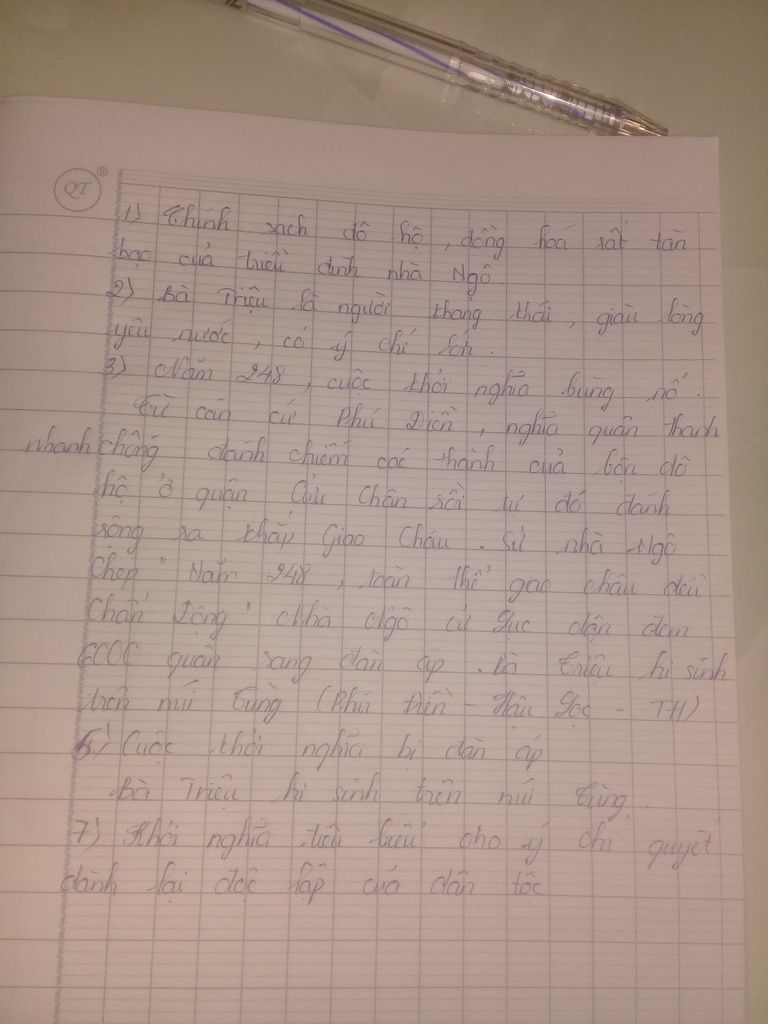 QT ®
1) Chính sach đô hộ, đồng hoá rất tàn
bạo của triều đình nhà Ngô.
2) Bà Triệu là người thong thái, giàu lòng
yêu nước, có ý chí lớn.
3) Năm 248, cuộc khởi nghĩa bùng nổ.
Từ căn cứ Phú Điền, nghĩa quân thanh
nhanh chóng đánh chiếm các thành của bọn đô
hộ ở quận Cửu Chân rồi từ đó đánh
rông ra khắp Giao Châu. Sử nhà Ngô
Chép "Năm 248, toàn thể giao châu đều
Chấn Động" Nhà Ngô cử Lục dận đem
6000 quân sang đàn áp. Bà Triệu hi sinh
trên núi Tùng (Phú Điền - Hậu Lộc - TH)
6) Cuộc khởi nghĩa bị đàn áp
Bà Triệu hi sinh trên núi Tùng.
7) Khởi nghĩa tiêu biểu cho ý chí quyết
dành lại độc lập của dân tộc